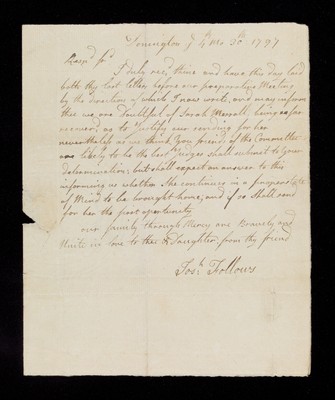 Donington ye 4th Mo 30th 1797
Respd frd
I duly recd thine and have this day laid
both thy last letters before our preparative Meeting
by the direction of which I now write, and may inform
that we are doubtful of Sarah Morrall being so far
recovered, as to justify our sending for her
nevertheless as we think you friends of the Committee
are likely to be the best Judges shall submit to your
determination; but shall expect an answer to this
informing us whether she continues in a proper State
of Mind to be brought home; and if so shall send
for her the first opertunity
our family through Mercy are Bravely and
Unite in love to thee & Daughter, from thy friend
Josh. Fallows